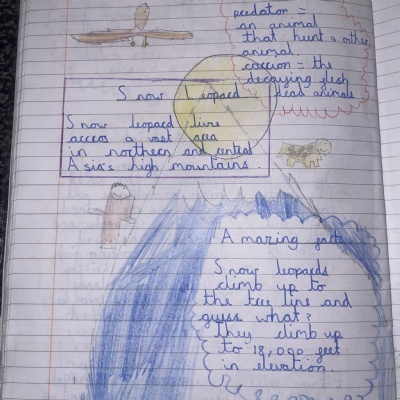 predator =
an animal
that hunt a other
animal.
carrion = the
decaying flesh
dead animals
Snow Leopard
Snow leopard live
accros a vast area
in northern and central
Asia's high mountains.
Amazing facts
Snow leopards
climb up to
the tree line and
guess what?
They climb up
to 18,000 feet
in elevation.